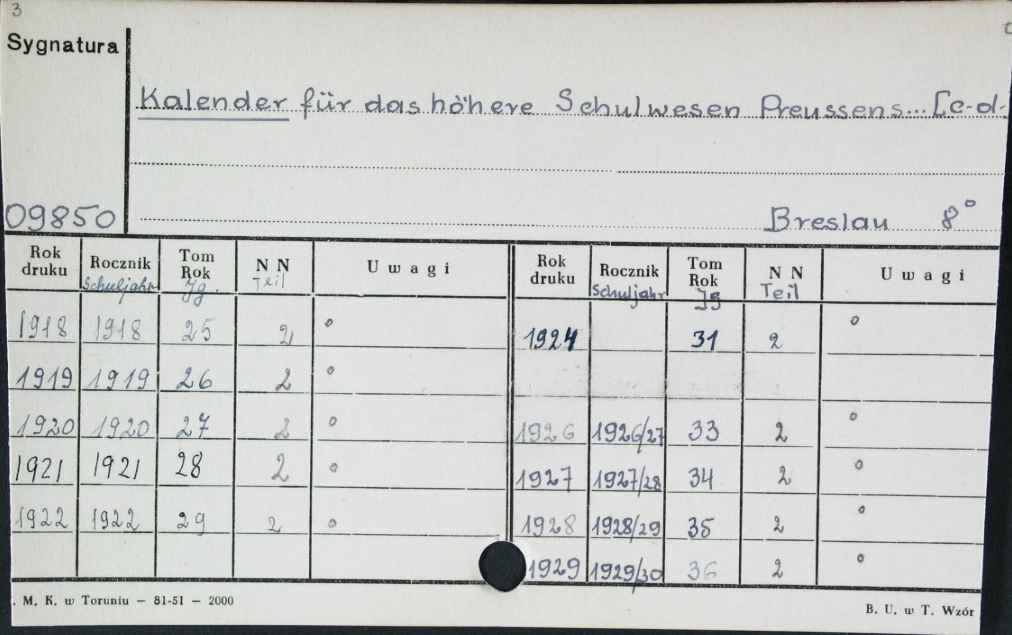 3
Sygnatura
Kalender für das höhere Schulwesen Preussens... [c-d-
09850 Breslau 8°
Rok druku Rocznik Schuljahr Tom Rok Jg. N N Teil Uwagi Rok druku Rocznik Schuljahr Tom Rok Jg N N Teil Uwagi
1918 1918 25 2 ° 1924 31 2 °
1919 1919 26 2 °
1920 1920 27 2 ° 1926 1926/27 33 2 °
1921 1921 28 2 ° 1927 1927/28 34 2 °
1922 1922 29 2 ° 1928 1928/29 35 2 °
1929 1929/30 36 2 °
. M. K. w Toruniu — 81-51 — 2000 B. U. w T. Wzór